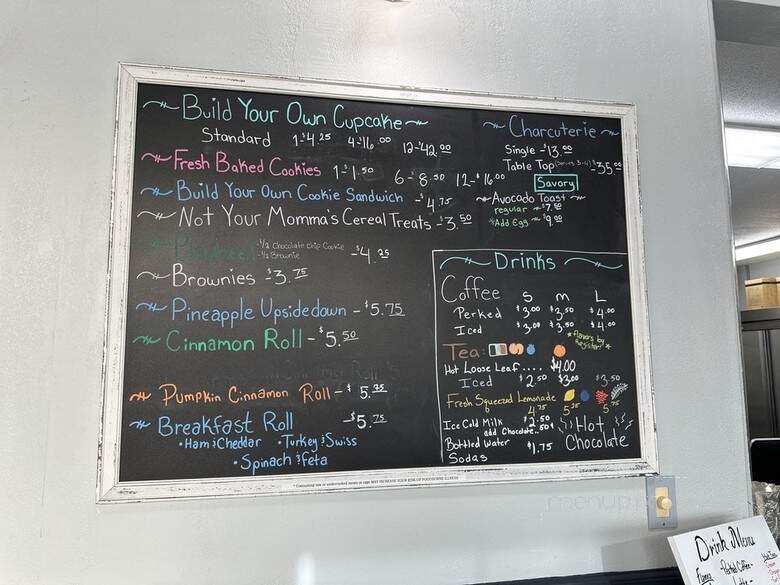 Build Your Own Cupcake
Standard 1-$4.25 4-$16.00 12-$42.00
Fresh Baked Cookies 1-$1.50 6-$8.50 12-$16.00
Build Your Own Cookie Sandwich -$4.75
Not Your Momma's Cereal Treats -$3.50
-1/2 Chocolate Chip Cookie
-1/2 Brownie
-$4.25
Brownies -$3.75
Pineapple Upsidedown - $5.75
Cinnamon Roll - $5.50
Pumpkin Cinnamon Roll - $5.75
Breakfast Roll -$5.75
•Ham & Cheddar •Turkey & Swiss
•Spinach & Feta
Charcuterie
Single -$13.00
Table Top (Serves 3-4) $-35.00
Savory
Avocado Toast
regular $7.50
*Add Egg $9.00
Drinks
Coffee S M L
Perked $3.00 $3.50 $4.00
Iced $3.00 $3.50 $4.00
*flavors by Register*
Tea:
Hot Loose Leaf.... $4.00
Iced $2.50 $3.00 $3.50
Fresh Squeezed Lemonade
4.75 5.25 5.75
Ice Cold Milk $2.50
add Chocolate.. 50¢
Bottled Water $1.75
Sodas
Hot Chocolate
* Consuming raw or undercooked meats or eggs MAY INCREASE YOUR RISK OF FOODBORNE ILLNESS
Drink Menu
Perked Coffee-